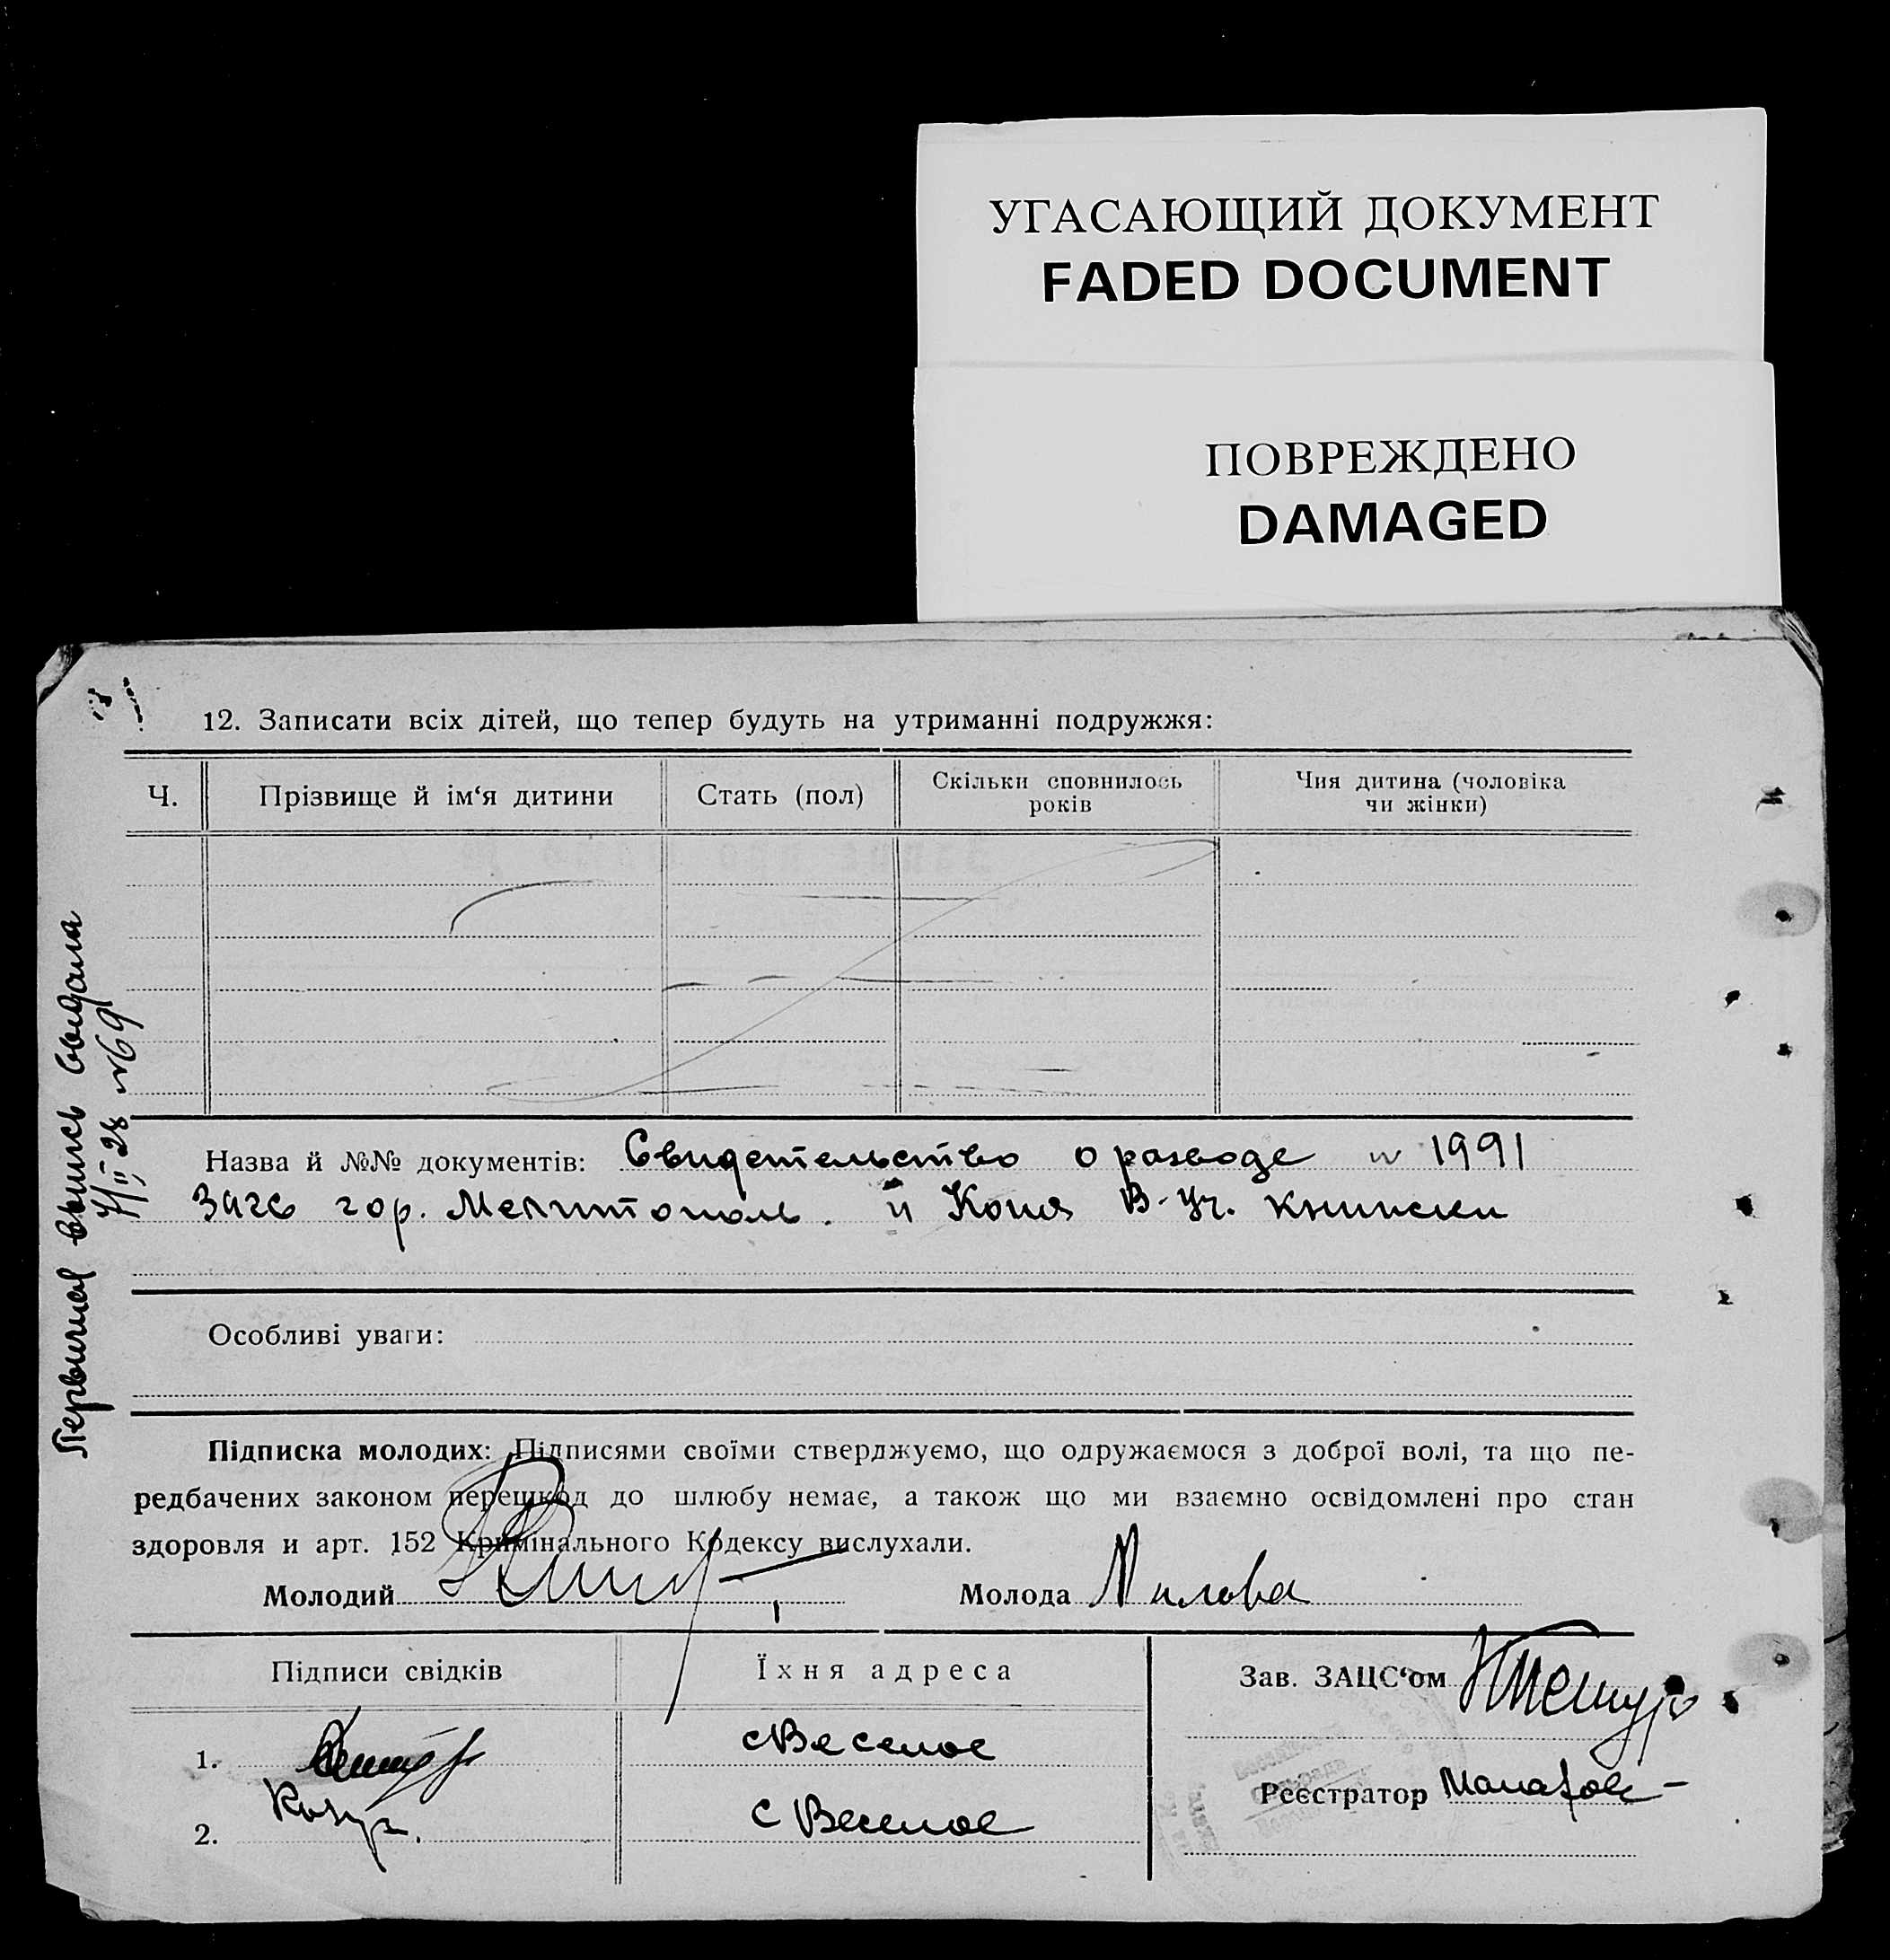 УГАСАЮЩИЙ ДОКУМЕНТ
FADED DOCUMENT
ПОВРЕЖДЕНО
DAMAGED
12. Записати всіх дітей, що тепер будуть на утриманні подружжя:
Ч.
Прізвище й ім‘я дитини
Стать (пол)
Скільки сповнилось
років
Чия дитина (чоловіка
чи жінки)
выпись выдана
7/II 28 №69
Назва й №№ документів: Свидетельство о разводе № 1991
Загс гор. Мелитополь. и Копия В-Уч. книжки
Особливі уваги:
Підписка молодих: Підписями своїми стверджуємо, що одружаємося з доброї волі, та що пе-
редбачених законом перешкод до шлюбу немає, а також що ми взаємно освідомлені про стан
здоровля и арт. 152 Кримінального Кодексу вислухали.
Молодий
Молода
Підписи свідків
Їхня адреса
Зав. ЗАЦС‘ом
1.
с Веселое
2.
с Веселое
Реєстратор